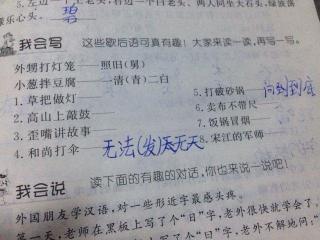 乐心头。碧
右边一个白老头、两人同坐大石头,绿波荡
我会写 这些歇后语可真有趣!大家来读一读,再写一写。
外甥打灯笼——照旧(舅)
小葱拌豆腐——一清(青)二白
1. 草把做灯
5. 打破砂锅 问到到底
2. 高山上敲鼓
6. 卖布不带尺
3. 歪嘴讲故事
7. 饭锅冒烟
4. 和尚打伞 无法(发)无天
8. 宋江的军师
我会说 读下面的有趣的对话,你也来说一说吧!
外国朋友学汉语,对一些形近字最感头疼。
第一天,老师在黑板上写了个“日”字,老外很快就学会了,
写了个“日”字,老外不解地问:“